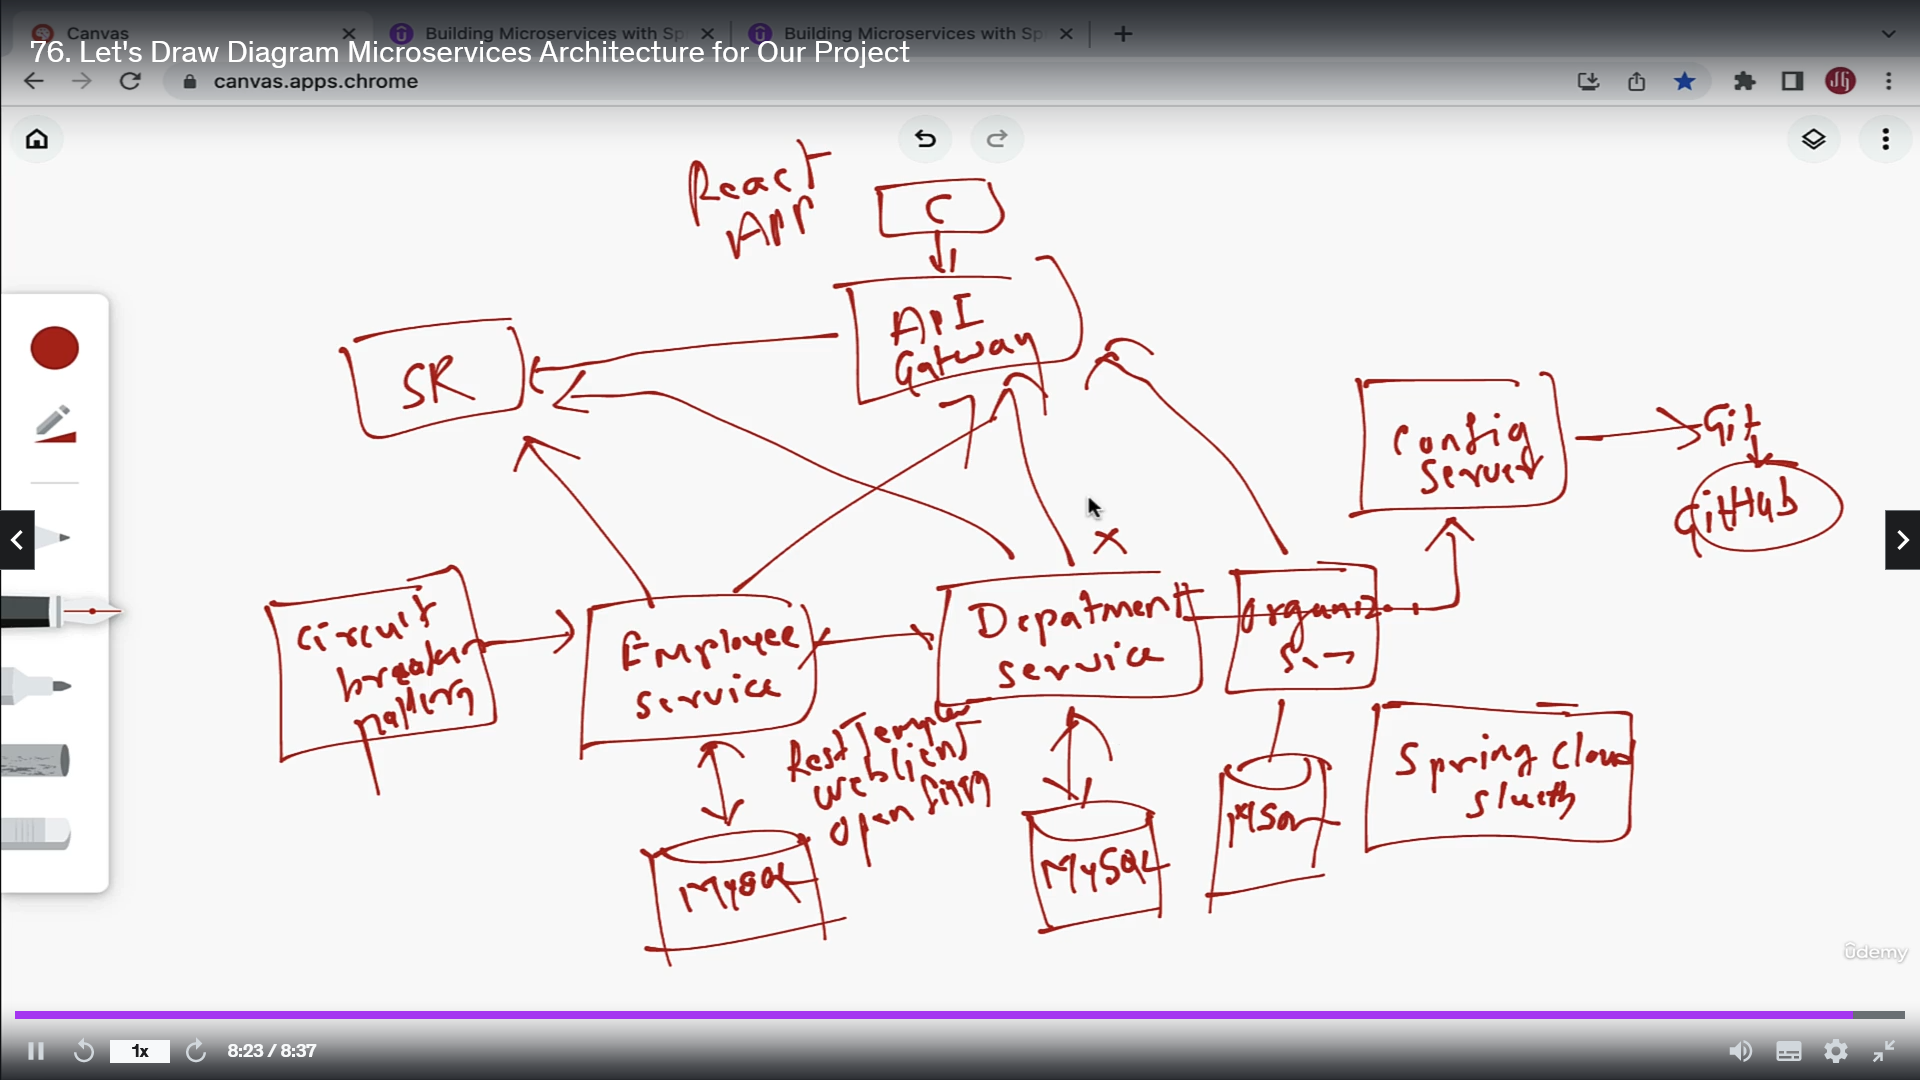 Canvas
Building Microservices with Sp
Building Microservices with Sp
76. Let's Draw Diagram Microservices Architecture for Our Project
canvas.apps.chrome
React
App
C
API
Gatway
SR
Config
Server
Git
GitHub
circuit
breaker
pattern
Employee
service
Depatment
service
Organiz
S.
RestTemplate
webclient
open feign
Spring Cloud
Slueth
MySQL
MySQL
MySQL
ûdemy
1x
8:23 / 8:37